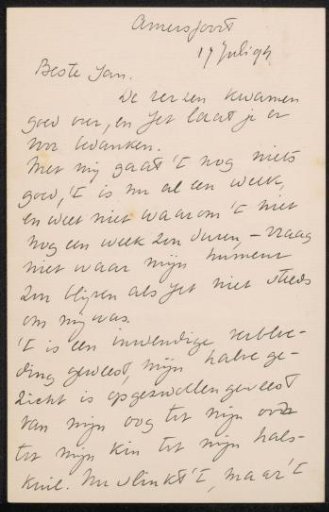 Amersfoort
17 Juli 94
Beste Jan.
De verzen kwamen
goed over, en Jet laat je er
voor bedanken.
Met mij gaat 't nog niets
goed, 't is nu al een week,
en weet niet waarom 't niet
nog een week zou duren, – vraag
niet waar mijn humeur
zou blijven als Jet niet steeds
om mij was.
't is een inwendige verbloe-
ding geweest, mijn halve ge-
zicht is opgezwollen geweest
van mijn oog tot mijn oor
tot mijn kin tot mijn hals-
kuil. Nu slinkt 't, maar 't